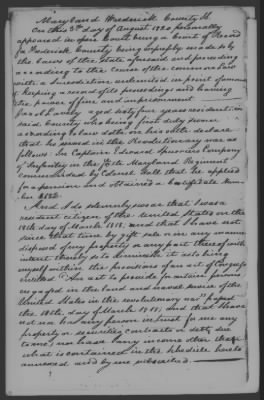 Maryland Frederick County St.
On this 8th day of August 1820 personally
appeared in open Court being a Court of Record
for Frederick County being expressly made so by
the laws of the State aforesaid and proceeding
according to the course of the common law
with a Jurisdiction unlimited in point of amount
& keeping a record of its proceedings and having
the power of fine and imprisonment
aged sixty four years resident in
said County who being first duly sworn
according to law doth on his oath declare
that he served in the Revolutionary war as
follows: In Captain Edward Company
of Infantry in the Maryland Regiment
commanded by Colonel Hall that he applied
for a pension and obtained a Certificate Num-
ber
And I do solemnly swear that I was a
resident citizen of the United States on the
18th day of March 1818, and that I have not
since that time by gift sale or in any manner
disposed of my property or any part thereof with
intent thereby so to diminish it as to bring
myself within the provisions of an act of Congress
entitled "An act to provide for certain persons
engaged in the land and naval service of the
United States in the revolutionary war" passed
the 18th day of March 1818; and that I have
not nor has any person in trust for me any
property or securities contracts or debts due
to me, nor have I any income other than
what is contained in the schedule hereto
annexed and by me subscribed.